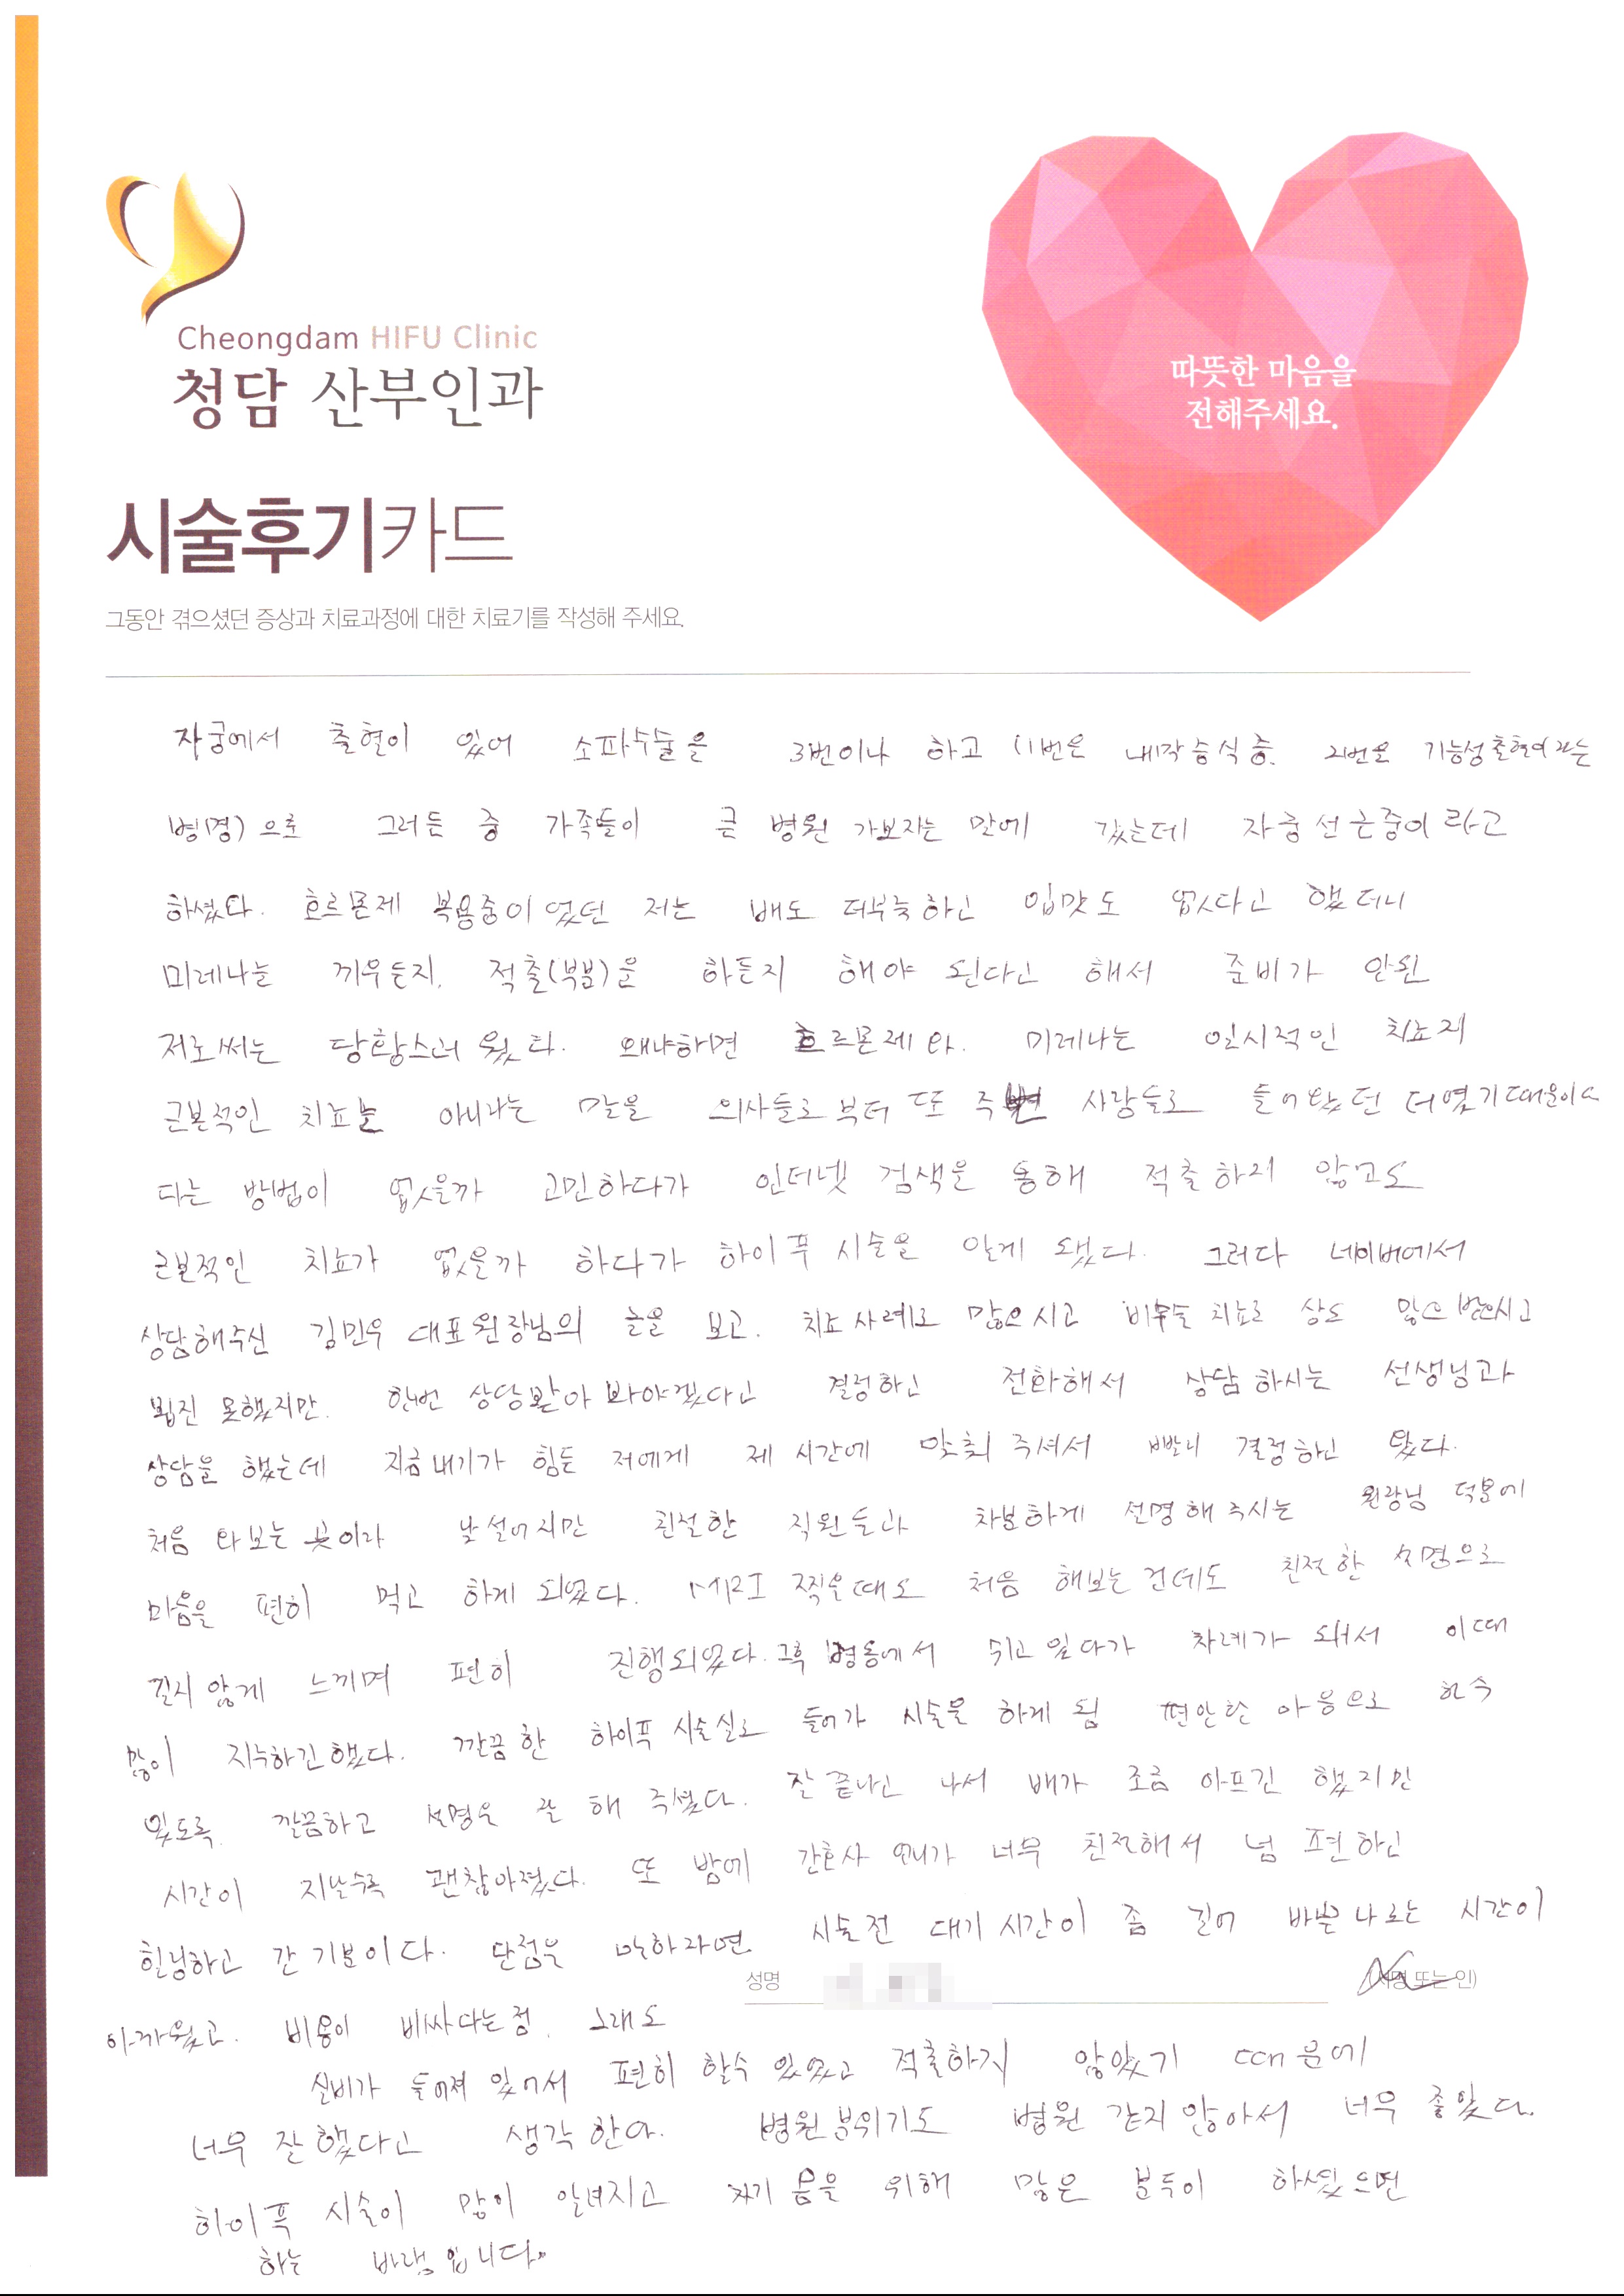 Cheongdam HIFU Clinic
청담 산부인과
따뜻한 마음을
전해주세요.
시술후기카드
그동안 겪으셨던 증상과 치료과정에 대한 치료기를 작성해 주세요.
자궁에서 출혈이 있어 소파수술을 3번이나 하고 (1번은 내막증식증. 2번은 기능성출혈이라는
병명)으로 그러든 중 가족들이 큰 병원 가보자는 말에 갔는데 자궁선근증이라고
하셨다. 호르몬제 복용중이었던 저는 배도 더부룩하고 입맛도 없다고 했더니
미레나를 끼우든지. 적출(부분)을 하든지 해야 된다고 해서 준비가 안된
저로써는 당황스러웠다. 왜냐하면 호르몬제와. 미레나는 일시적인 치료지
근본적인 치료는 아니라는 말을 의사들로부터 또 주변 사람들로 들어왔던 터였기때문이다
다른 방법이 없을까 고민하다가 인터넷 검색을 통해 적출하지 않고도
근본적인 치료가 없을까 하다가 하이푸 시술을 알게 됐다. 그러다 네이버에서
상담해주신 김민우 대표원장님의 글을 보고. 치료사례도 많으시고 비수술 치료로 상도 많으 받으시고
뵙진 못했지만. 한번 상담받아 봐야겠다고 결정하고 전화해서 상담하시는 선생님과
상담을 했는데 지금내기가 힘든 저에게 제 시간에 맞춰 주셔서 빨리 결정하고 왔다.
처음 와보는 곳이라 낯설어지만 친절한 직원들과 차분하게 설명해 주시는 원장님 덕분에
마음을 편히 먹고 하게 되었다. MRI 찍을때도 처음 해보는 건데도 친절한 설명으로
길지 않게 느끼며 편히 진행되었다. 그후 병동에서 쉬고 있다가 차례가 돼서 이때
많이 지루하긴했다. 깔끔한 하이푸 시술실로 들어가 시술을 하게 됨 편안한 마음으로 할수
있도록. 깔끔하고 설명을 잘 해 주셨다. 잘 끝나고 나서 배가 조금 아프긴 했지만
시간이 지날수록 괜찮아졌다. 또 밤에 간호사 언니가 너무 친절해서 넘 편하고
힐링하고 간 기분이다. 단점을 말하라면 시술전 대기시간이 좀 길어 바쁜 나로는 시간이
성명 (서명 또는 인)
아까웠고. 비용이 비싸다는점. 그래도
실비가 들어져 있어서 편히 할수 있었고 적출하지 않았기 때문에
너무 잘했다고 생각한다. 병원분위기도 병원 같지 않아서 너무 좋았다.
하이푸 시술이 많이 알려지고 자기 몸을 위해 많은 분들이 하셨으면
하는 바램입니다.